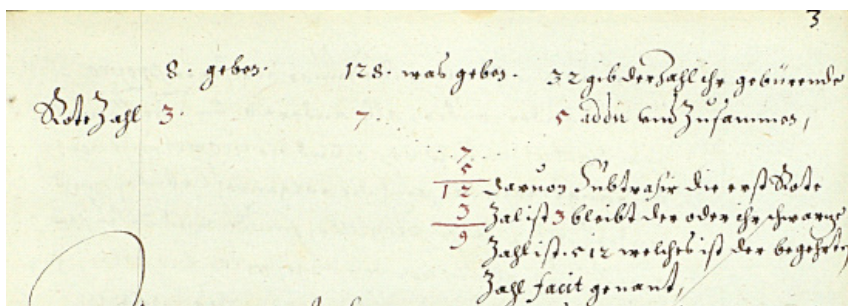 3
8. geben. 128. was geben. 32 gib der Zahl ihr gebürende
Rote Zahl 3. 7. 5 addir vnd Zusammen,
7
5
12 daruon Subtrahir die erst Rote
3 Zal ist 3 bleibt der oder ihr schwartze
9 Zahl ist. 512 welches ist der begehrten
Zahl facit genant,